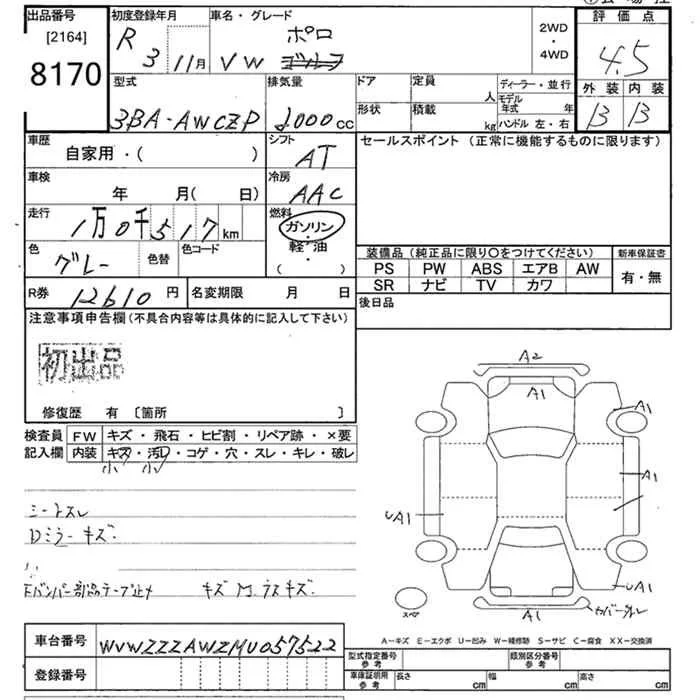 出品番号
[2164]
8170
初度登録年月
R 3 11月
車名・グレード
ポロ
VW ゴルフ
2WD
・
4WD
評価点
4.5
外装 内装
B B
型式
3BA-AWCZP
排気量
2000cc
ドア
定員
人
形状
積載
kg
ディーラー・並行
モデル年式 年
ハンドル 左・右
車歴
自家用・( )
シフト
AT
セールスポイント (正常に機能するものに限ります)
車検
年 月( 日)
冷房
AAC
走行
1万0千517km
燃料
ガソリン
・
軽・油
( )
色
グレー
色替
色コード
装備品(純正品に限り○をつけてください)
新車保証書
PS PW ABS エアB AW
SR ナビ TV カワ
有・無
R券 12610円
名変期限 月 日
後日品
注意事項申告欄(不具合内容等は具体的に記入して下さい)
初出品
修復歴 有 〔箇所 〕
検査員
記入欄
FW キズ・飛石・ヒビ割・リペア跡・×要
内装 キズ・汚レ・コゲ・穴・スレ・キレ・破レ
小 小
シートスレ
Dミラーキズ.
Fバンパー部品テープ止メ キズ
A2
A1
A1
A1
UA1
UA1
A1
スペア
A－キズ E－エクボ U－凹み W－補修跡 S－サビ C－腐食 XX－交換済
車台番号 WVWZZZAWZMU057522
登録番号
型式指定番号
参考
類別区分番号
参考
車庫証明用
参考
長さ cm
幅 cm
高さ cm